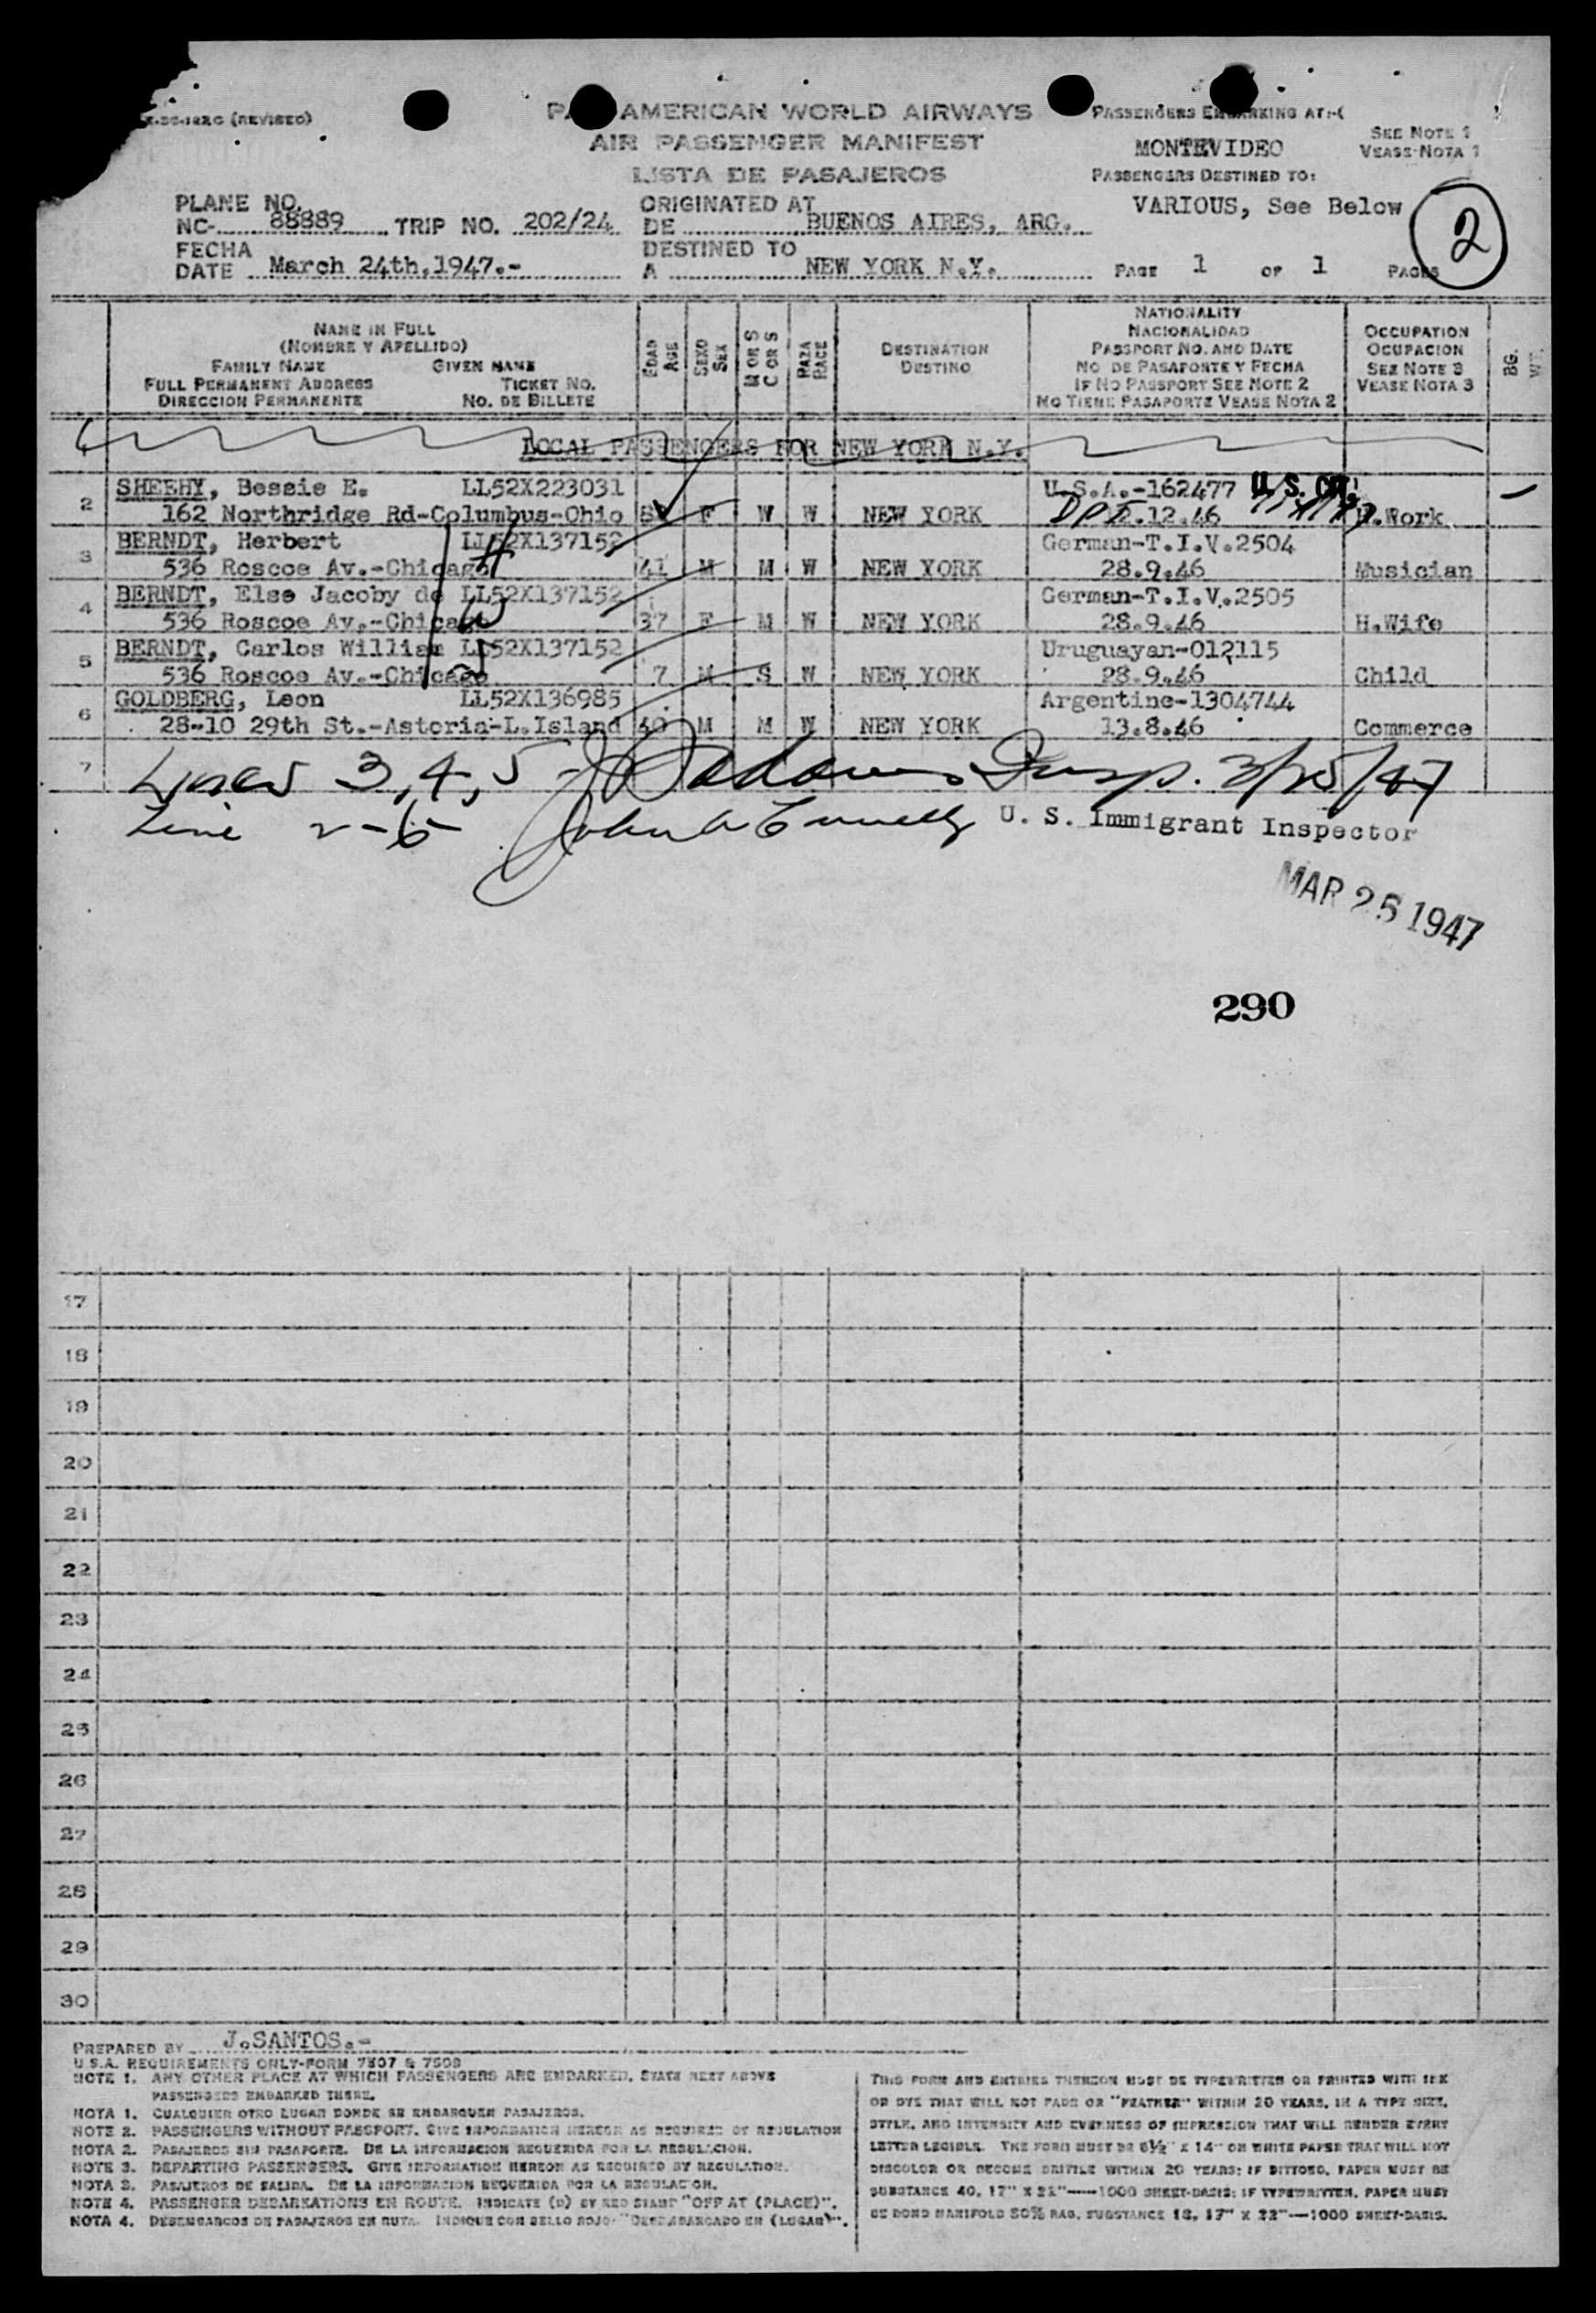 (REVISED)
AMERICAN WORLD AIRWAYS
AIR PASSENGER MANIFEST
LISTA DE PASAJEROS
PASSENGERS EMBARKING AT:-(
SEE NOTE 1
MONTEVIDEO
VEASE NOTA 1
PASSENGERS DESTINED TO:
VARIOUS, See Below
2
PLANE NO.
NC- 88889 TRIP NO. 202/24
ORIGINATED AT
DE BUENOS AIRES, ARG.
FECHA
DATE March 24th,1947.-
DESTINED TO
A NEW YORK N.Y.
PAGE 1 OF 1 PAGES
NAME IN FULL
(NOMBRE Y APELLIDO)
FAMILY NAME GIVEN NAME
FULL PERMANENT ADDRESS TICKET NO.
DIRECCION PERMANENTE NO. DE BILLETE
EDAD
AGE
SEXO
SEX
M OR S
C OR S
RAZA
RACE
DESTINATION
DESTINO
NATIONALITY
NACIONALIDAD
PASSPORT NO. AND DATE
NO DE PASAPORTE Y FECHA
IF NO PASSPORT SEE NOTE 2
NO TIENE PASAPORTE VEASE NOTA 2
OCCUPATION
OCUPACION
SEE NOTE 3
VEASE NOTA 3
BG.
WT.
LOCAL PASSENGERS FOR NEW YORK N.Y.
2 SHEEHY, Bessie E. LL52X223031 U.S.A.-162477 U.S. CIT.
162 Northridge Rd-Columbus-Ohio F W W NEW YORK 2.12.46 .Work
3 BERNDT, Herbert LL52X137152 German-T.I.V.2504
536 Roscoe Av.-Chicago H 41 M M W NEW YORK 28.9.46 Musician
4 BERNDT, Else Jacoby de LL52X137152 German-T.I.V.2505
536 Roscoe Av.-Chicago W 37 F M W NEW YORK 28.9.46 H.Wife
5 BERNDT, Carlos William LL52X137152 Uruguayan-012115
536 Roscoe Av.-Chicago 7 M S W NEW YORK 28.9.46 Child
6 GOLDBERG, Leon LL52X136985 Argentine-1304744
28-10 29th St.-Astoria-L.Island 40 M M W NEW YORK 13.8.46 Commerce
7 Lines 3,4,5 Insp. 3/25/47
Line 2-6 U. S. Immigrant Inspector
MAR 25 1947
290
17
18
19
20
21
22
23
24
25
26
27
28
29
30
PREPARED BY J.SANTOS.-
U.S.A. REQUIREMENTS ONLY-FORM 7507 & 7509
NOTE 1. ANY OTHER PLACE AT WHICH PASSENGERS ARE EMBARKED, STATE NEXT ABOVE
PASSENGERS EMBARKED THERE.
NOTA 1. CUALQUIER OTRO LUGAR DONDE SE EMBARQUEN PASAJEROS.
NOTE 2. PASSENGERS WITHOUT PASSPORT. GIVE INFORMATION HEREON AS REQUIRED BY REGULATION
NOTA 2. PASAJEROS SIN PASAPORTE. DE LA INFORMACION REQUERIDA POR LA REGULACION.
NOTE 3. DEPARTING PASSENGERS. GIVE INFORMATION HEREON AS REQUIRED BY REGULATION.
NOTA 3. PASAJEROS DE SALIDA. DE LA INFORMACION REQUERIDA POR LA REGULACION.
NOTE 4. PASSENGER DEBARKATIONS EN ROUTE. INDICATE (D) BY RED STAMP "OFF AT (PLACE)".
NOTA 4. DESEMBARCOS DE PASAJEROS EN RUTA. INDIQUE CON SELLO ROJO "DESEMBARCADO EN (LUGAR)".
THIS FORM AND ENTRIES THEREON MUST BE TYPEWRITTEN OR PRINTED WITH INK
OR DYE THAT WILL NOT FADE OR "FEATHER" WITHIN 20 YEARS, IN A TYPE SIZE,
STYLE, AND INTENSITY AND EVENNESS OF IMPRESSION THAT WILL RENDER EVERY
LETTER LEGIBLE. THE FORM MUST BE 8½" X 14" ON WHITE PAPER THAT WILL NOT
DISCOLOR OR BECOME BRITTLE WITHIN 20 YEARS; IF DITTOED, PAPER MUST BE
SUBSTANCE 40, 17" X 22"—1000 SHEET-BASIS; IF TYPEWRITTEN, PAPER MUST
BE BOND MANIFOLD 50% RAG, SUBSTANCE 18, 17" X 22"—1000 SHEET-BASIS.